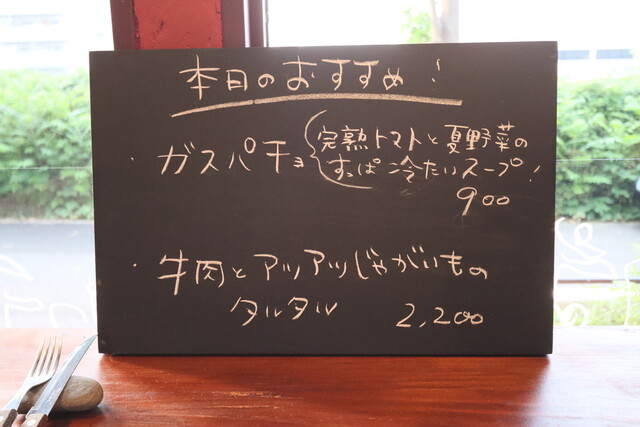 本日のおすすめ!
・ガスパチョ
完熟トマトと夏野菜の
すっぱ冷たいスープ!
900
・牛肉とアツアツじゃがいもの
タルタル 2,200